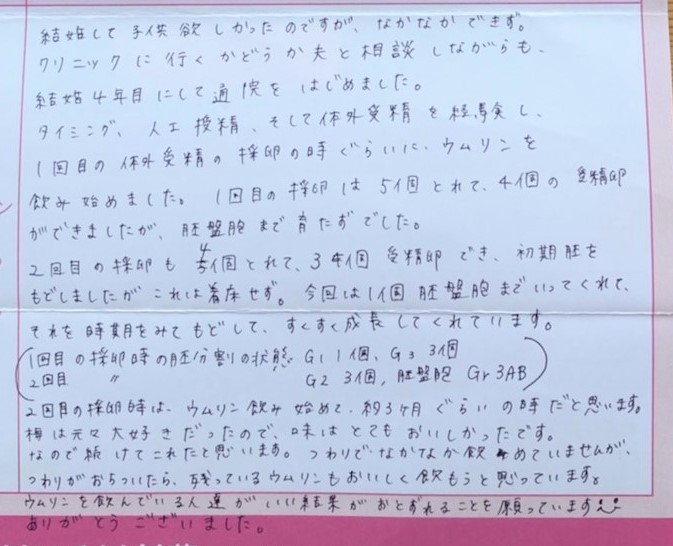 結婚して子供欲しかったのですが、なかなかできず。
クリニックに行くかどうか夫と相談しながらも、
結婚4年目にして通院をはじめました。
タイミング、人工授精、そして体外受精を経験し、
1回目の体外受精の採卵の時ぐらいに、ウムリンを
飲み始めました。1回目の採卵は5個とれて、4個の受精卵
ができましたが、胚盤胞まで育たずでした。
2回目の採卵も4個とれて、3個受精卵でき、初期胚を
もどしましたがこれは着床せず。今回は1個胚盤胞までいってくれて、
それを時期をみてもどして、すくすく成長してくれています。
(1回目の採卵時の胚分割の状態 G1 1個、G3 3個
2回目 〃 G2 3個, 胚盤胞 Gr3AB)
2回目の採卵時は、ウムリン飲み始めて、約3ヶ月ぐらいの時だと思います。
梅は元々大好きだったので、味はとてもおいしかったです。
なので続けてこれたと思います。つわりでなかなか飲めていませんが、
つわりがおちついたら、残っているウムリンもおいしく飲もうと思っています。
ウムリンを飲んでいる人達がいい結果がおとずれることを願っています
ありがとうございました。